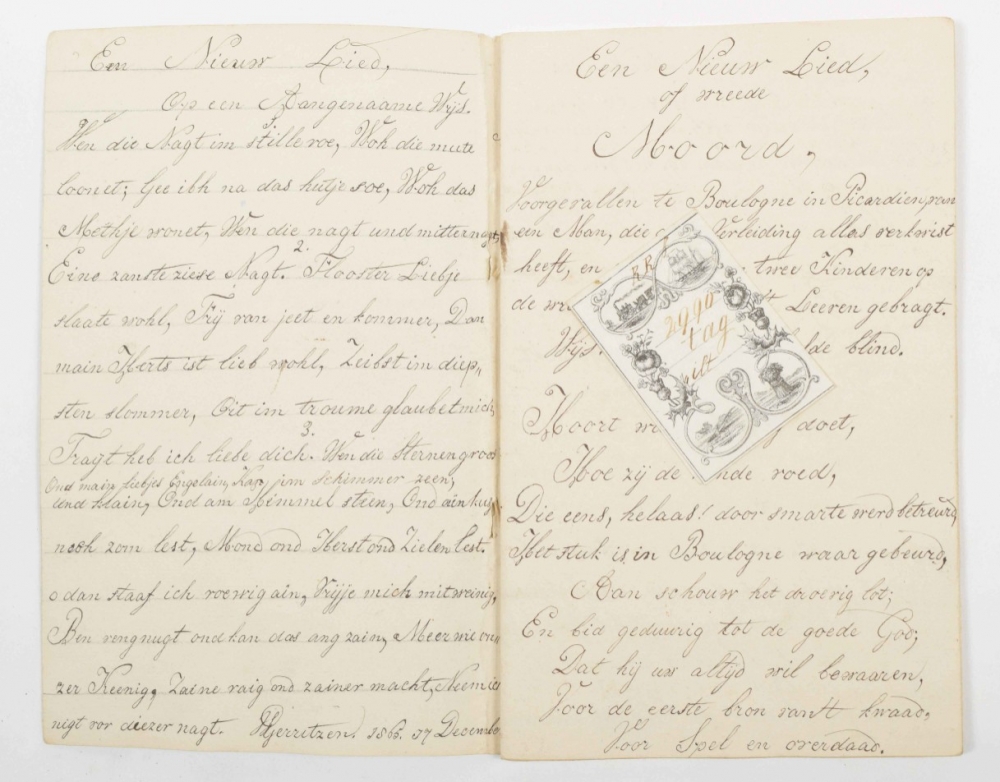 Een Nieuw Lied,
Op een Aangenaame Wijs.
Wen die Nagt im stille roe, Woh die mute
loonet; Gee ibh na das hutje soe, Woh das
Methje wonet, Wen die nagt und mitternagt,
2.
Eine zanste ziese Nagt. Flooster Liebje
slaate wohl, Frij van jeet en kommer, Dan
main Herts ist lieb wohl, Zeibst im diep„
sten slommer, Oit im troume glaubet mich,
3.
Fragt heb ich liebe dich. Wen die Sternengroos
Ond main liebjes Engelain, Kan jim Schimmer zeen,
und klain, Ond am Himmel steen, Ond ain kus,
noch zom lest, Mond ond Herst ond Zielen lest.
o dan staaf ich roewig ain, Vrijje mich mit weinig,
Ben vengnugt ond kan das ang zain, Meer wie on„
zer Keenig, Zaine raig ond zainer macht, Neem ic
nigt vor diezer nagt. Hjerritzen. 1865. 17 Decembe
Een Nieuw Lied,
of wreede
Moord,
Voorgevallen te Boulogne in Picardien, van
een Man, die Verleiding alles verkwist
heeft, en twee Kinderen op
de Leeren gebragt.
Wijs. lde blind.
Hoort doet,
Hoe zij de nde voed,
Die eens, helaas! door smarte werd betreurd,
Het stuk is in Boulogne waar gebeurd,
Aan schouw het droevig lot;
En bid geduurig tot de goede God;
Dat hij uw altijd wil bewaaren,
Voor de eerste bron van 't kwaad,
Voor Spel en overdaad.
RR
tag